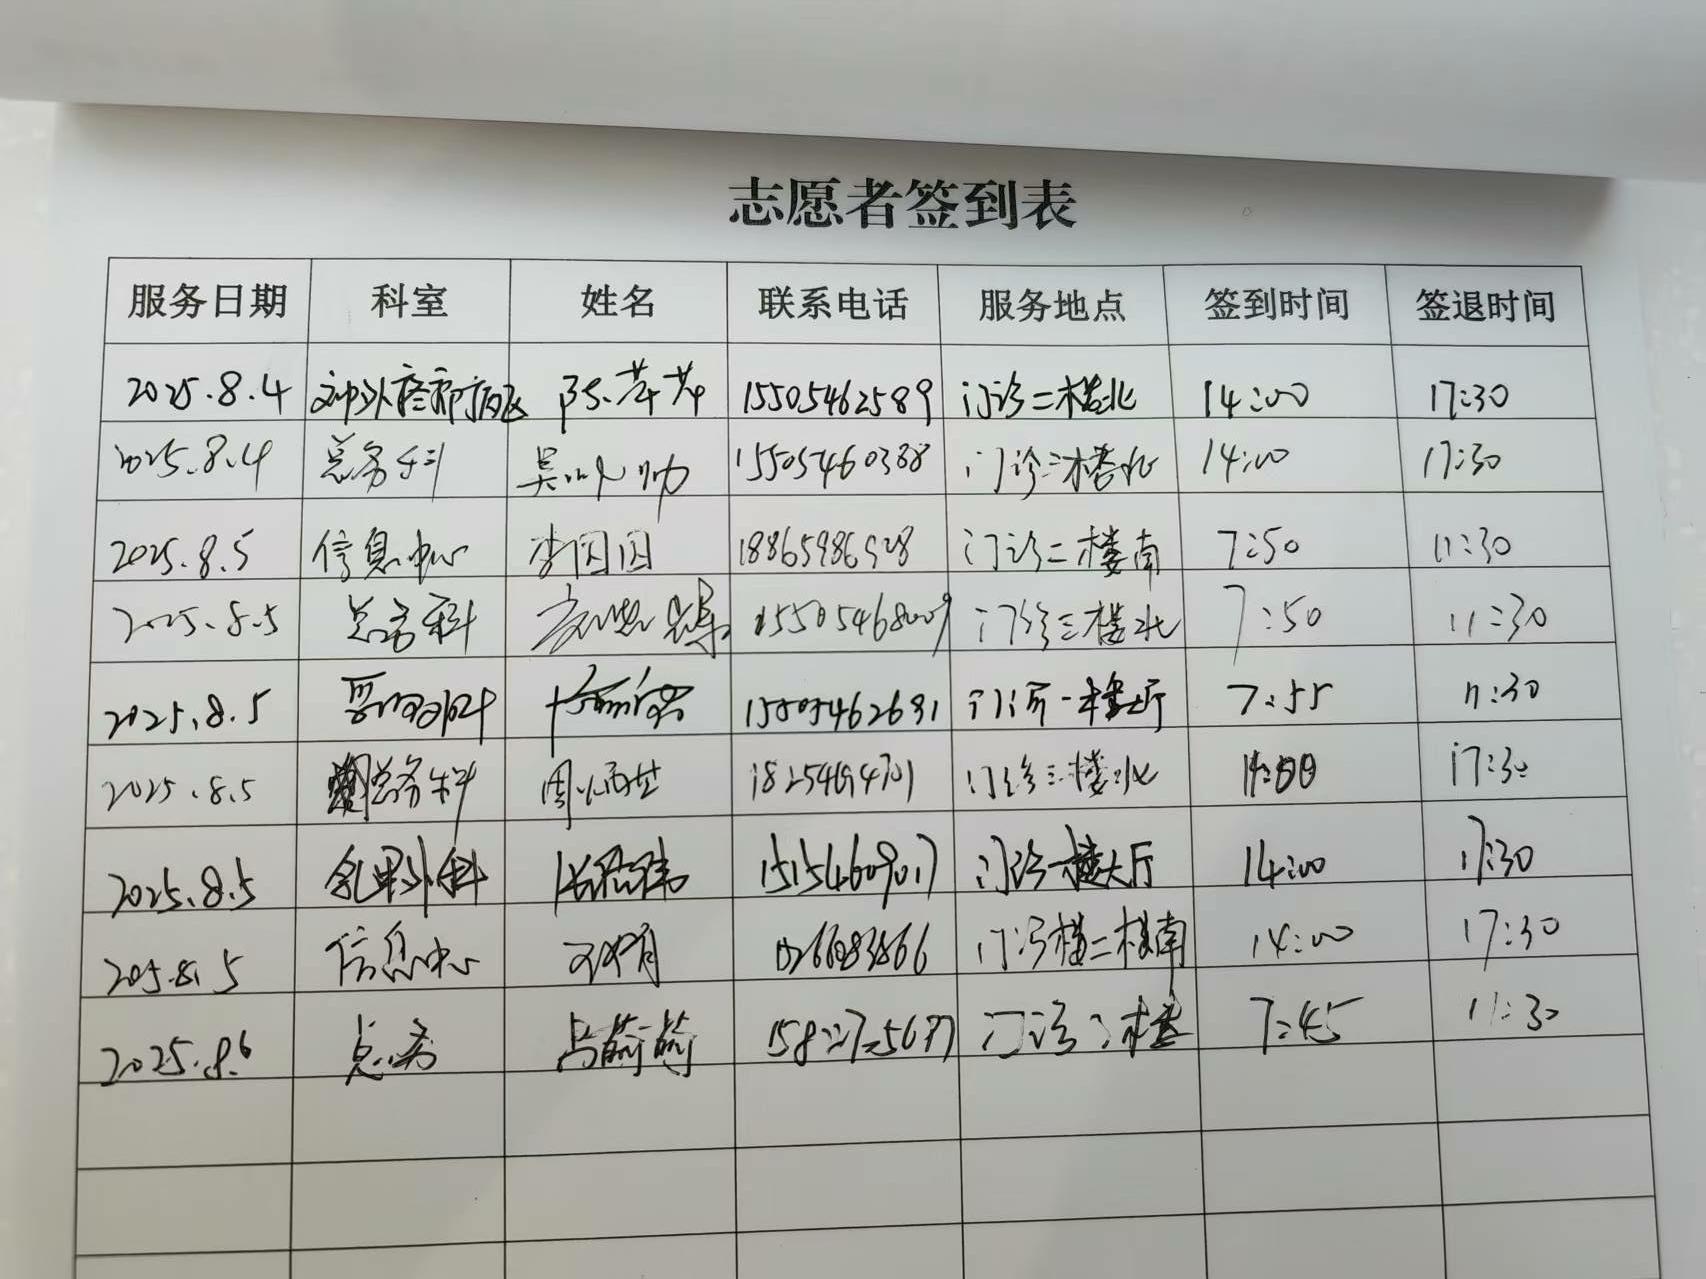 志愿者签到表
服务日期 科室 姓名 联系电话 服务地点 签到时间 签退时间
2025.8.4 神外疼痛病区 陈芹芹 15505462589 门诊二楼北 14:00 17:30
2025.8.4 总务科 吴 15505460388 门诊三楼北 14:00 17:30
2025.8.5 信息中心 李囡囡 18865986528 门诊二楼南 7:50 11:30
2025.8.5 总务科 15505468009 门诊三楼北 7:50 11:30
2025.8.5 15505462631 门诊一楼大厅 7:55 11:30
2025.8.5 总务科 周 门诊三楼北 14:00 17:30
2025.8.5 乳甲外科 15154609017 门诊一楼大厅 14:00 17:30
205.8.5 信息中心 门诊楼二楼南 14:00 17:30
2025.8.6 总务 门诊 楼 7:45 11:30